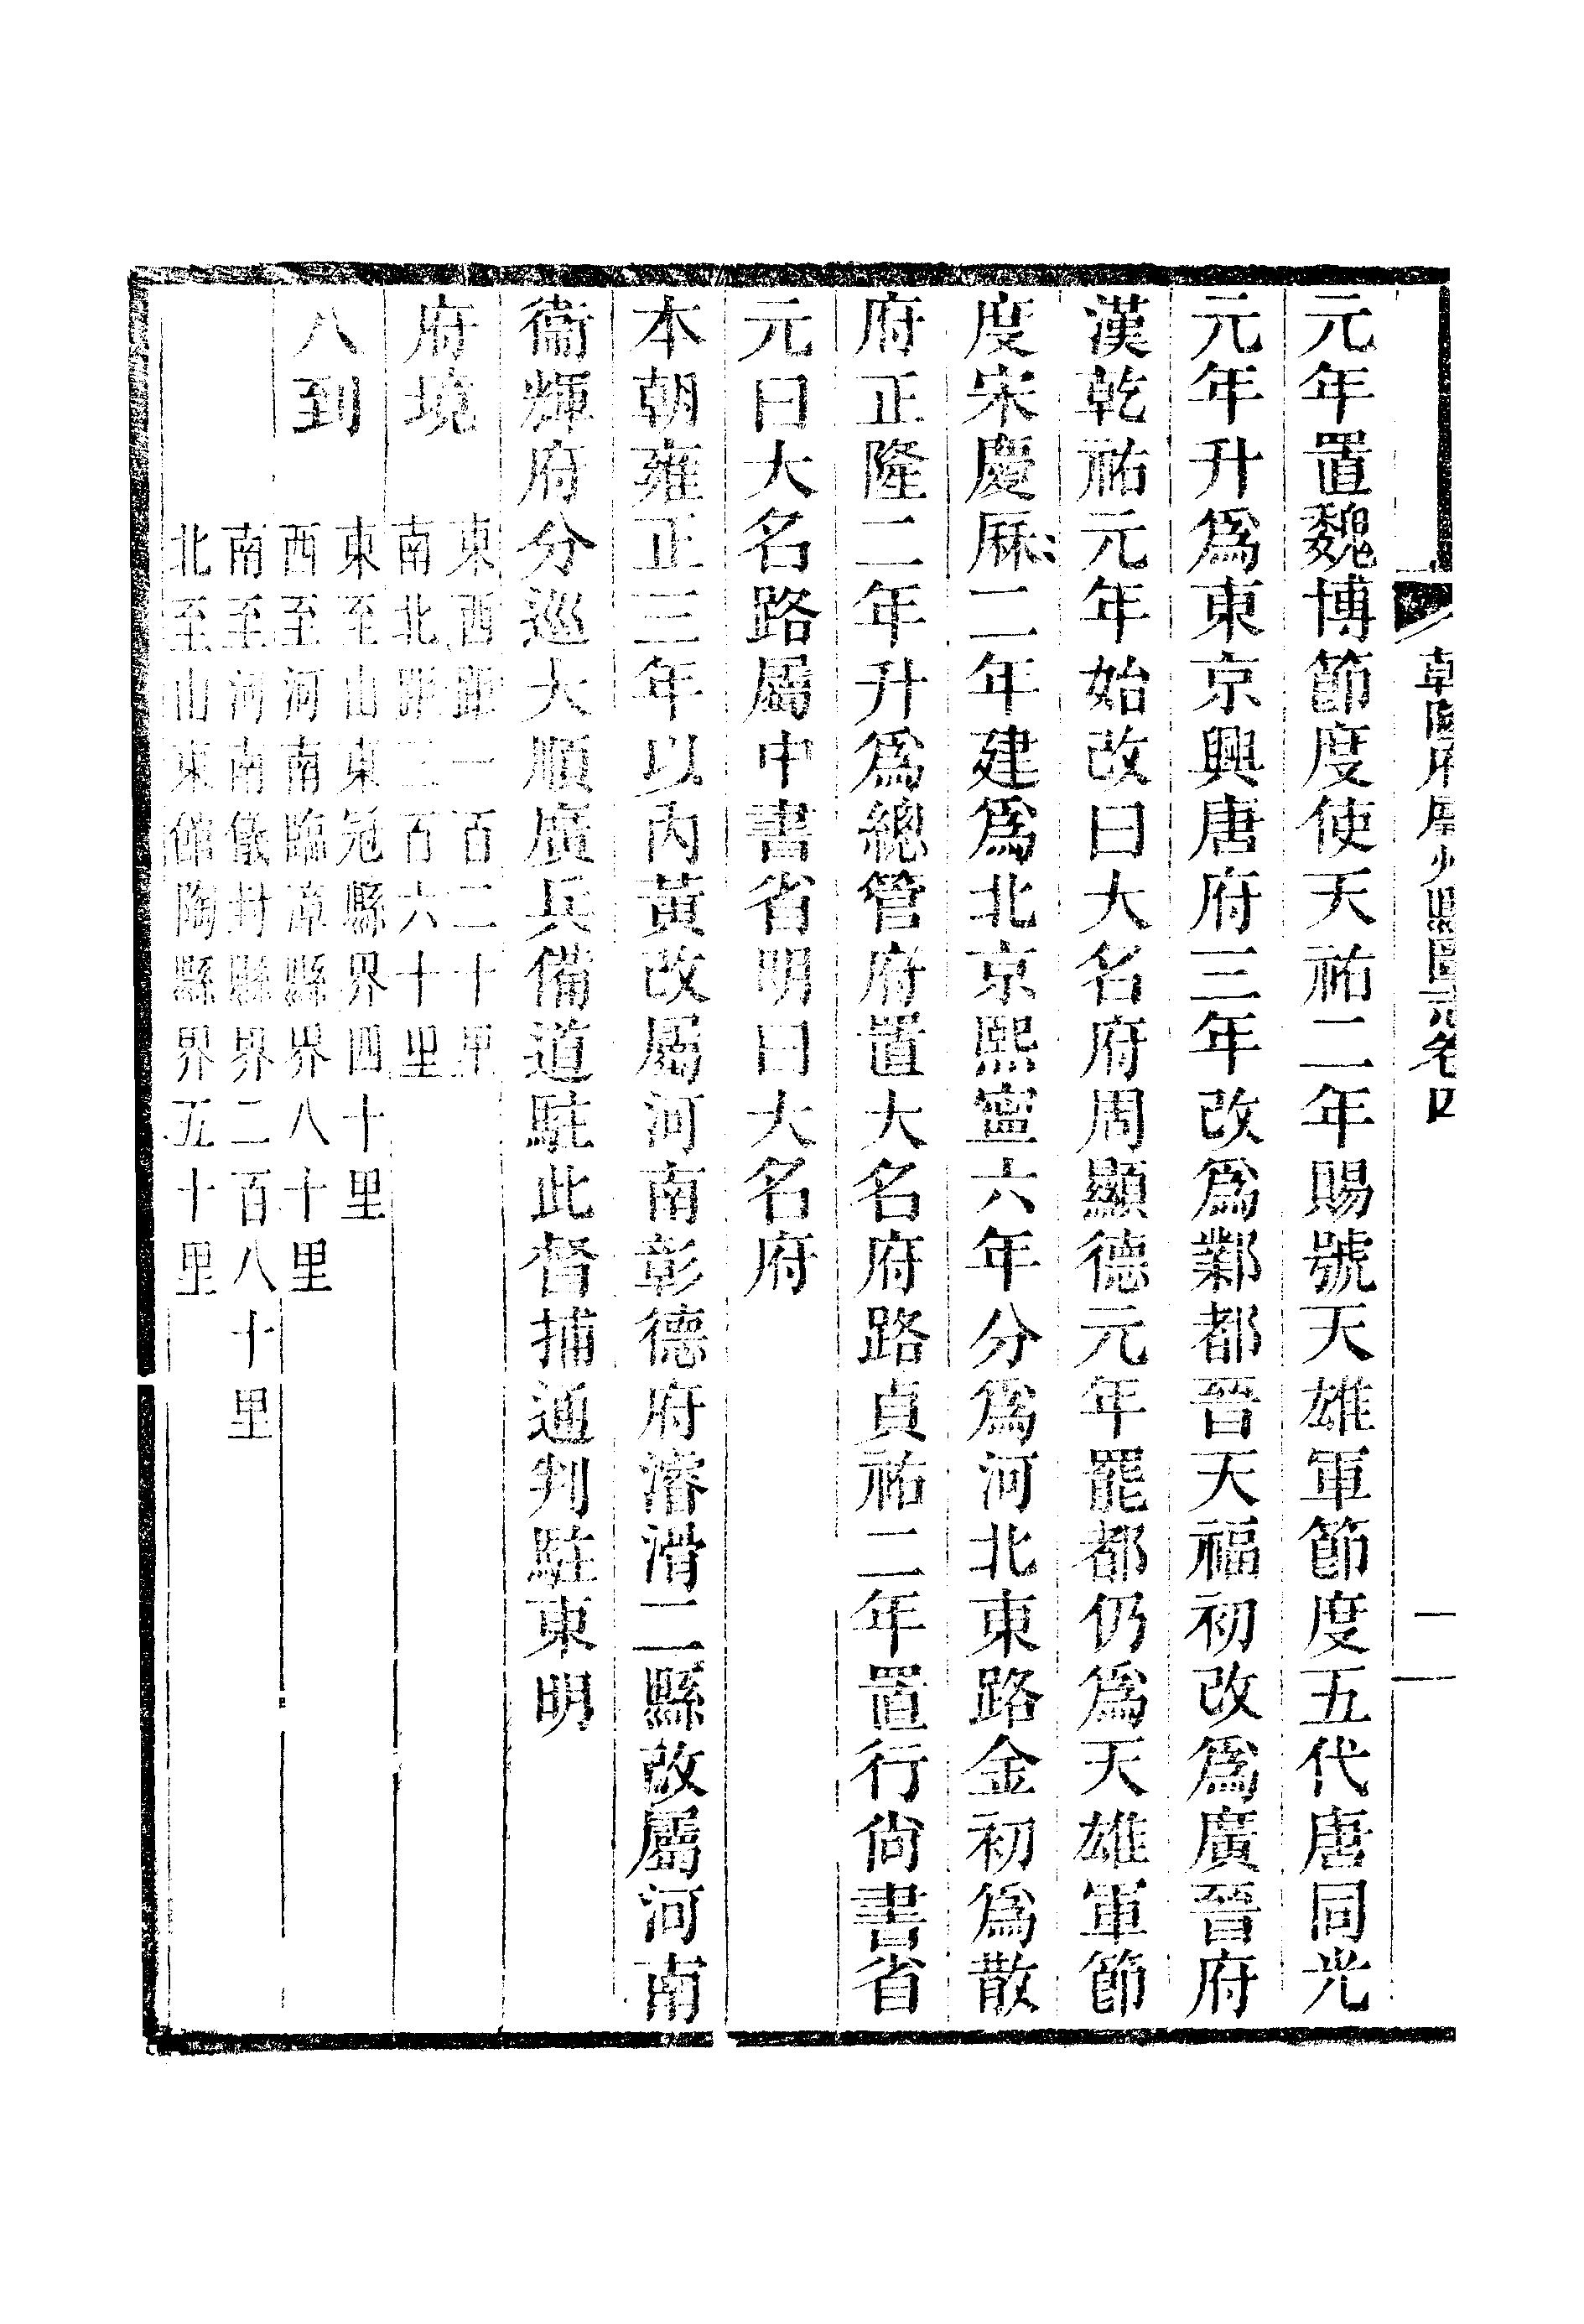 元年置魏博節度使天祐二年賜號天雄軍節度五代唐同光
元年升爲東京興唐府三年改爲鄴都晉天福初改爲廣晉府
漢乾祐元年始改曰大名府周顯德元年罷都仍爲天雄軍節
度宋慶厤二年建爲北京熙寧六年分爲河北東路金初爲散
府正隆二年升爲總管府置大名府路貞祐二年置行尚書省
元曰大名路屬中書省明曰大名府
本朝雍正三年以內黃改屬河南彰德府濬滑二縣改屬河南
衞輝府分巡大順廣兵備道駐此督捕通判駐東明
府境
東西距一百二十里
南北距三百六十里
八到
東至山東冠縣界四十里
西至河南臨漳縣界八十里
南至河南儀封縣界二百八十里
北至山東館陶縣界五十里